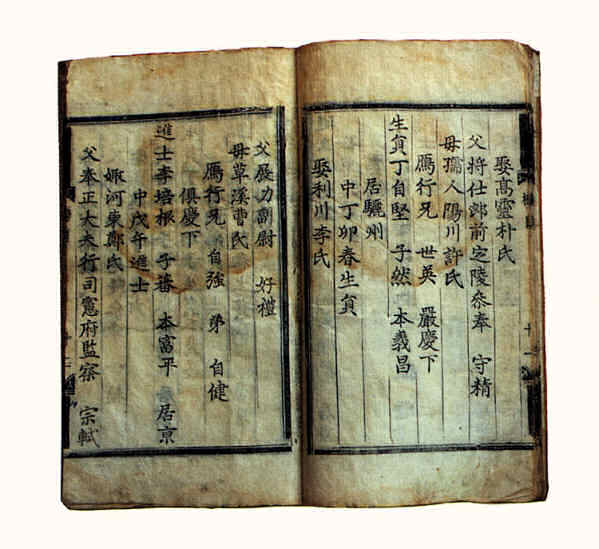 娶高靈朴氏
父將仕郎前定陵參奉 守精
母孺人陽川許氏
鴈行兄 世英 嚴慶下
生貟丁自堅 子然 本義昌
居驪州
中丁卯春生貟
娶利川李氏
父展力副尉 好禮
母草溪曹氏
鴈行兄 自強 弟 自健
俱慶下
進士李培根 子蕃 本富平 居京
中戊午進士
娵河東鄭氏
父奉正大夫行司憲府監察 宗軾